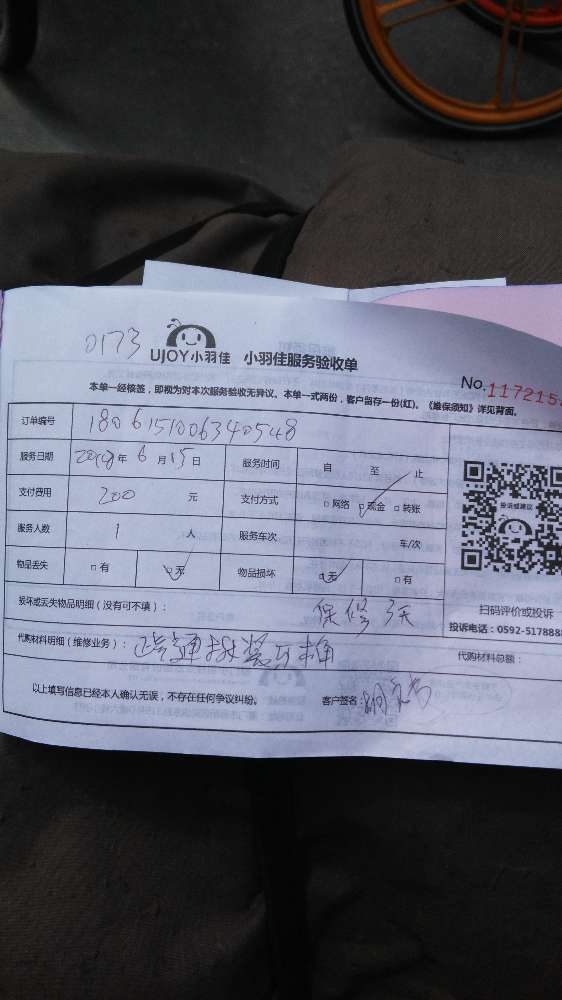 0173
UJOY小羽佳 小羽佳服务验收单
No. 117215
本单一经核签，即视为对本次服务验收无异议。本单一式两份，客户留存一份(红)。《维保须知》详见背面。
订单编号 1806151006340548
服务日期 2018年 6月15日 服务时间 自 至 止
支付费用 200 元 支付方式 □网络 ☑现金 □转账
服务人数 1 人 服务车次 车/次
物品丢失 □有 ☑无 物品损坏 ☑无 □有
投诉或建议
扫码评价或投诉
投诉电话：0592-517888
损坏或丢失物品明细（没有可不填）： 保修3天
代购材料明细（维修业务）： 疏通 马桶
代购材料总额：
以上填写信息已经本人确认无误，不存在任何争议纠纷。 客户签名：